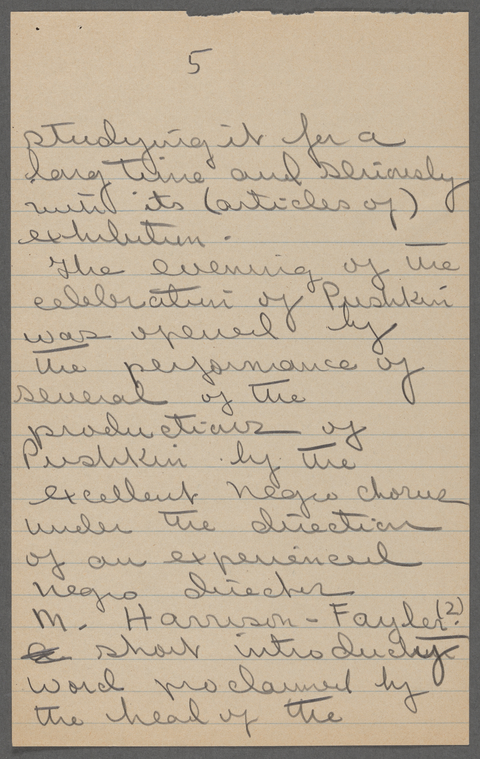 5
studying it for a
long time and seriously
with its (articles of)
exhibition.
The evening of the
celebration of Pushkin
was opened by
the performance of
several of the
productions of
Pushkin by the
excellent Negro chorus
under the direction
of an experienced
Negro director
M. Harrison-Fayler(?).
a short introductory
word proclaimed by
the head of the